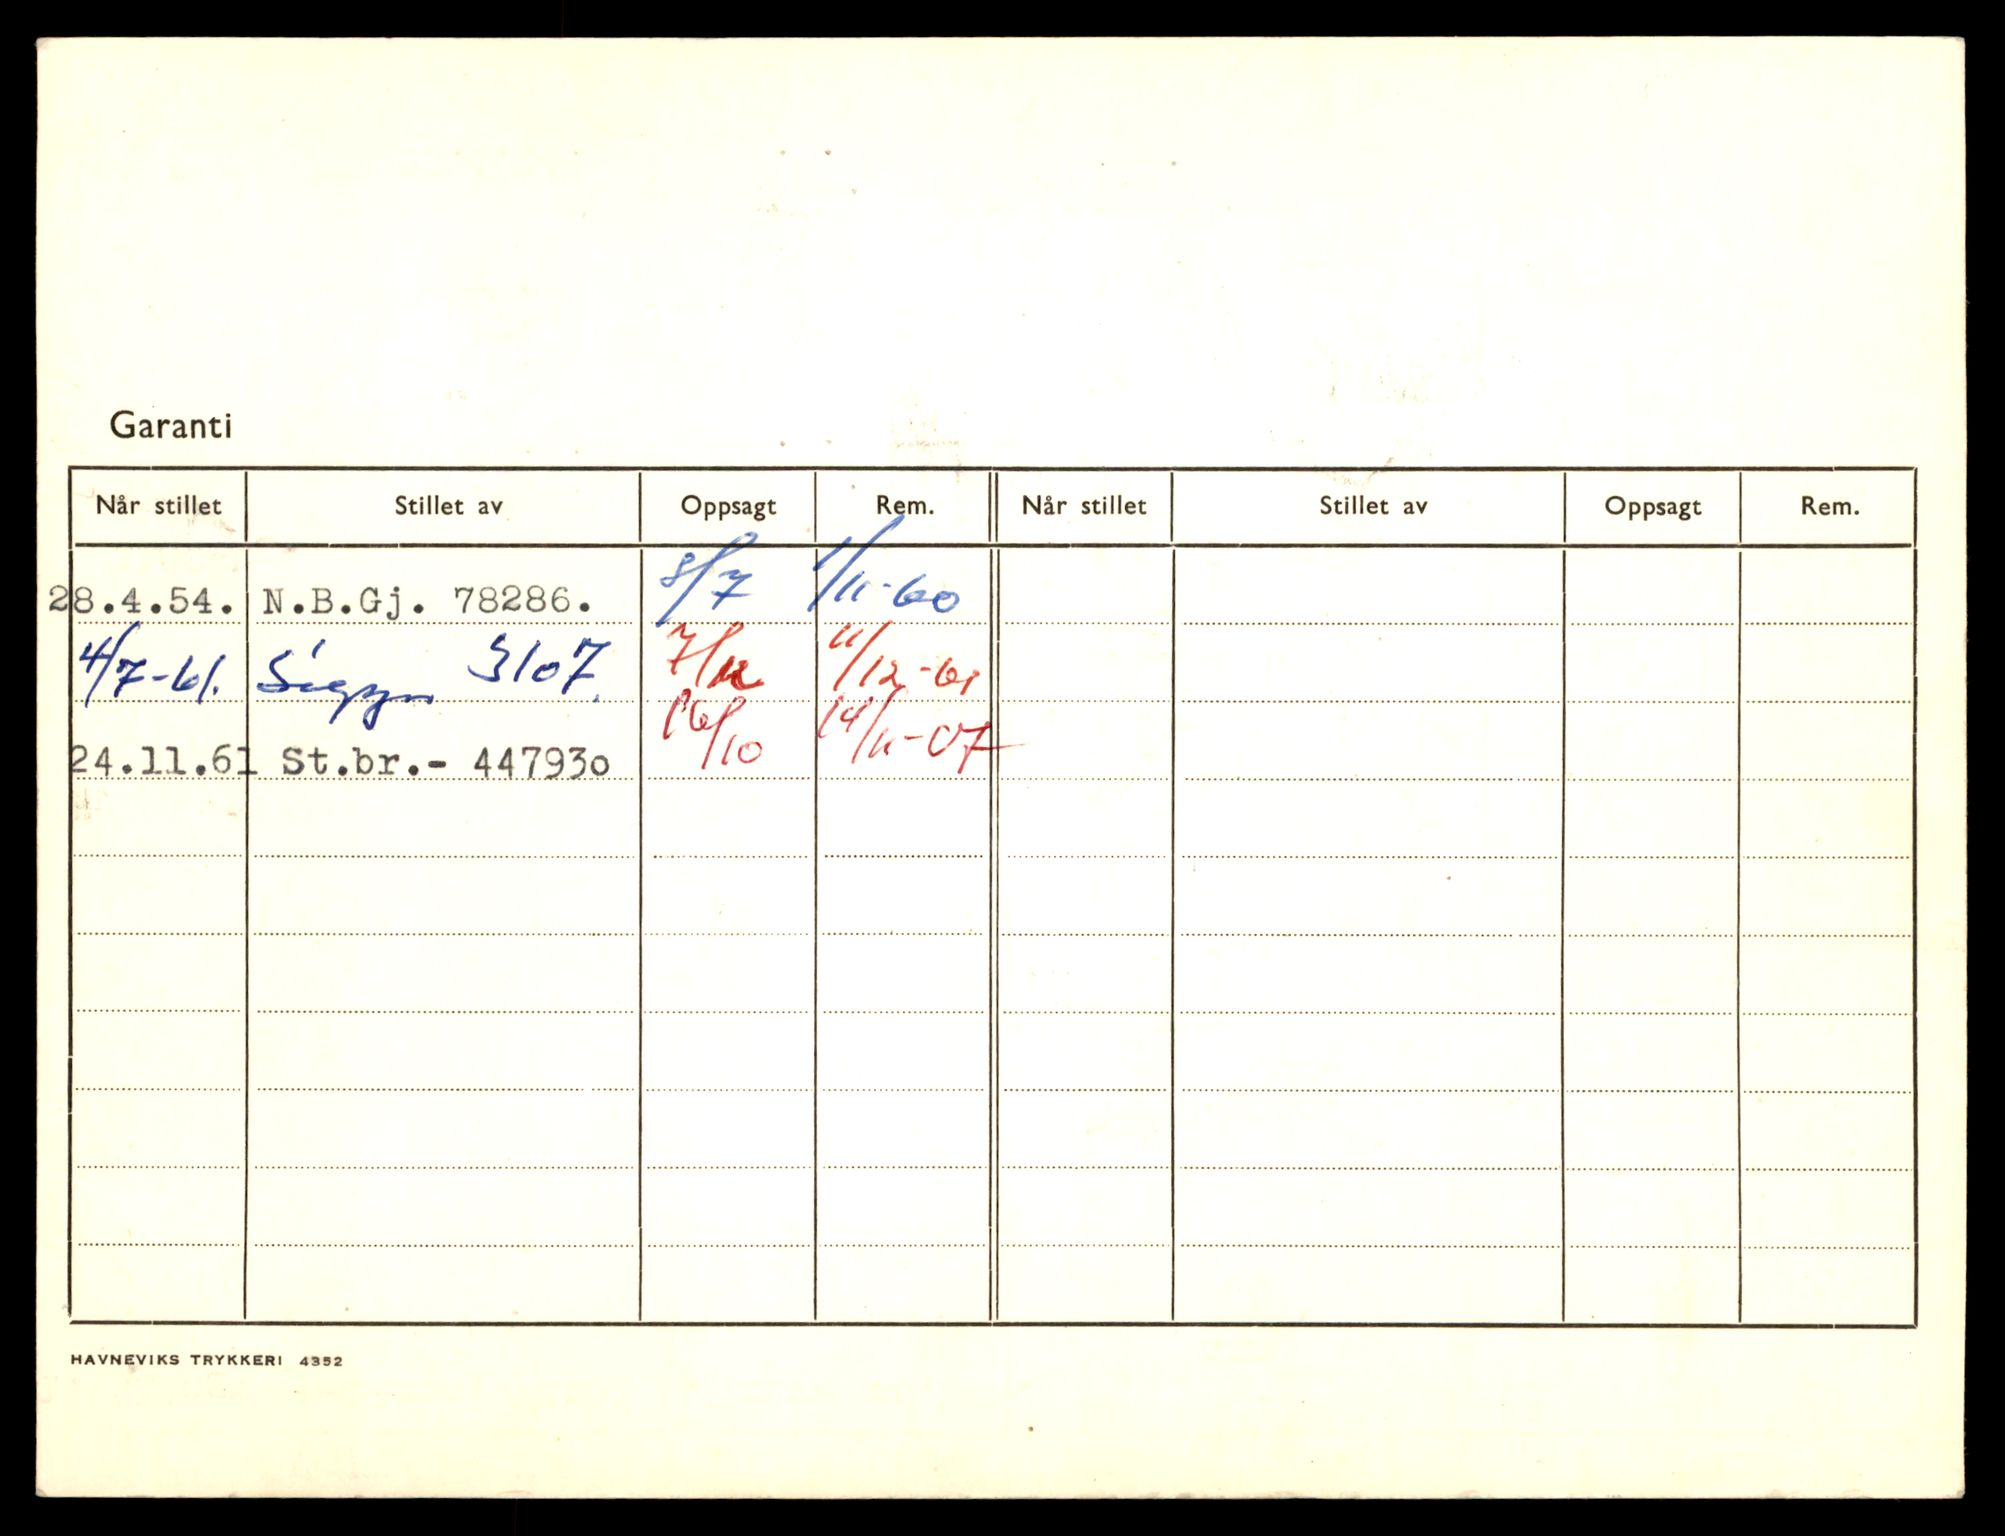 Garanti
Når stillet Stillet av Oppsagt Rem. Når stillet Stillet av Oppsagt Rem.
28.4.54. N.B.Gj. 78286. 8/7 1/11-60
4/7-61. Sigyn 3107. 7/12 11/12-61
24.11.61 St.br.- 447930 16/10 14/11-07
HAVNEVIKS TRYKKERI 4352